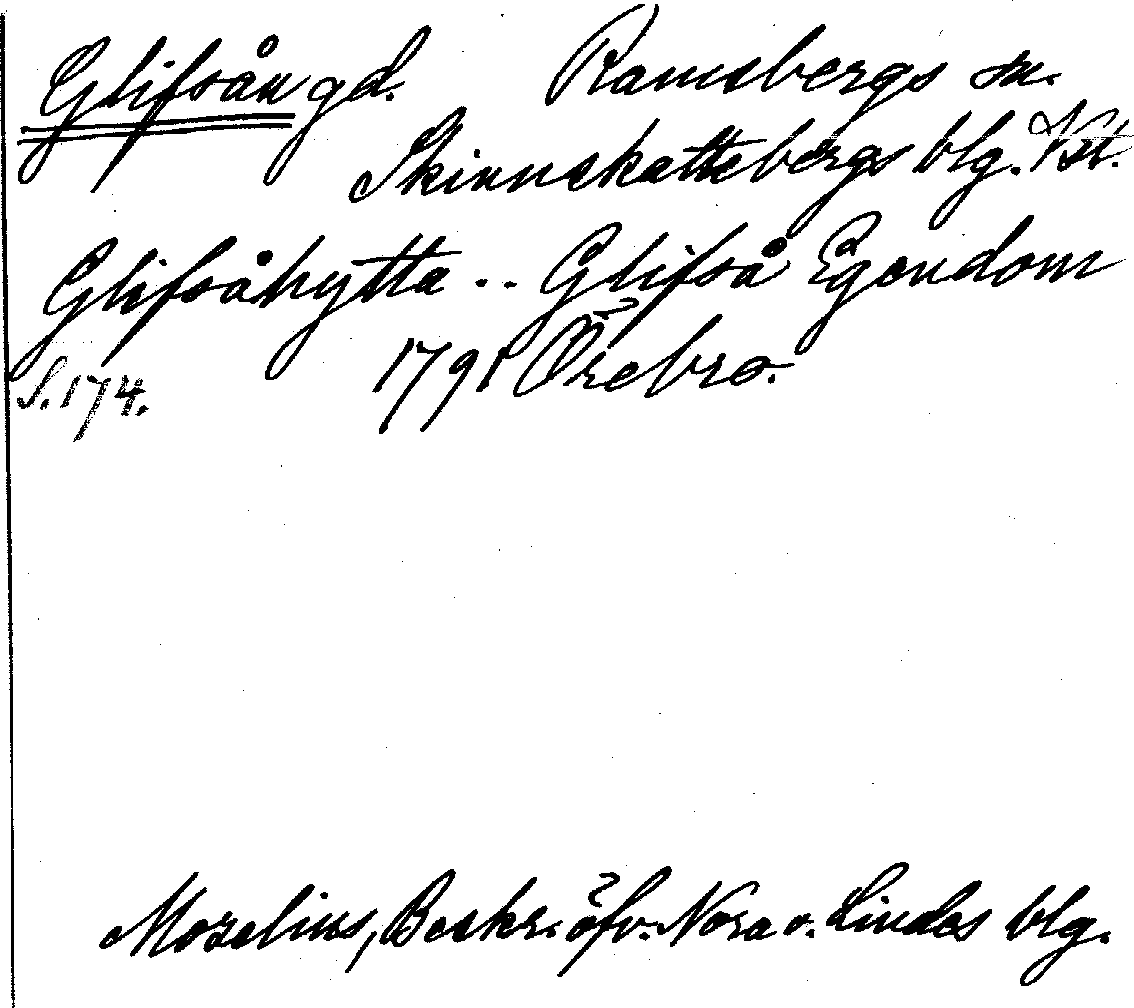 Glifsån gd. Ramsbergs sn.
Skinnskattebergs blg. Vst.
Glifsåhytta .. Glifså Egendom
S. 174. 1791 Örebro.
Mozelius, Beskr. öfv. Nora o. Lindes blg.